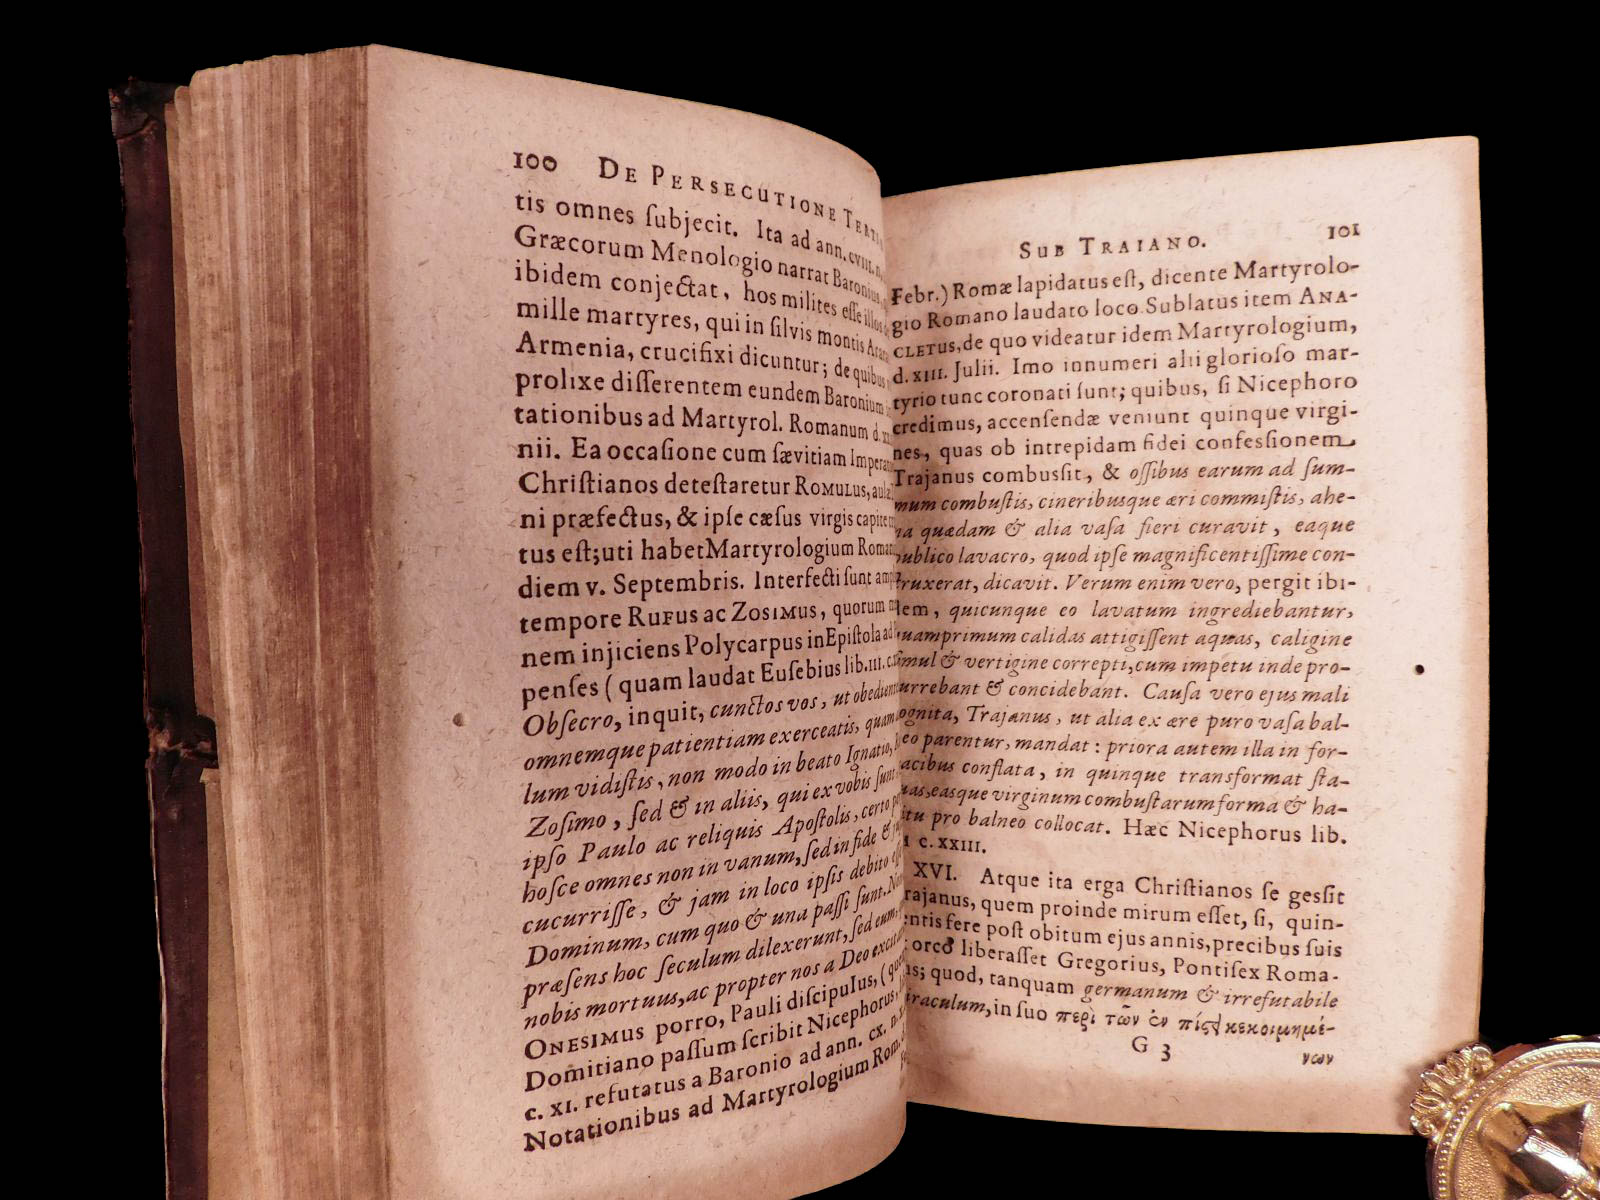 100 DE PERSECUTIONE
tis omnes ſubjecit. Ita ad ann. CVIII.
Græcorum Menologio narrat Baronius,
ibidem conjectat, hos milites eſſe illos
mille martyres, qui in ſilvis montis
Armenia, crucifixi dicuntur; de quibus
prolixe diſſerentem eundem Baronium
tationibus ad Martyrol. Romanum d.
nii. Ea occaſione cum ſævitiam
Chriſtianos deteſtaretur ROMULUS,
ni præfectus, & ipſe cæſus virgis capite
tus eſt; uti habet Martyrologium
diem V. Septembris. Interfecti ſunt
tempore RUFUS ac ZOSIMUS, quorum
nem injiciens Polycarpus in Epiſtola ad
penſes ( quam laudat Euſebius lib. III.
Obſecro, inquit, cunctos vos, ut
omnemque patientiam exerceatis,
lum vidiſtis, non modo in beato Ignatio,
Zoſimo, ſed & in aliis, qui ex vobis ſunt
ipſo Paulo ac reliquis Apoſtolis, certo
hoſce omnes non in vanum, ſed in fide &
cucurriſſe, & jam in loco ipſis debito
Dominum, cum quo & una paſſi ſunt.
præſens hoc ſeculum dilexerunt, ſed eum,
nobis mortuus, ac propter nos a Deo
ONESIMUS porro, Pauli diſcipulus,
Domitiano paſſum ſcribit Nicephorus,
c. XI. refutatus a Baronio ad ann. CX.
Notationibus ad Martyrologium Rom.
SUB TRAIANO. 101
Febr.) Romæ lapidatus eſt, dicente Martyrolo-
gio Romano laudato loco. Sublatus item ANA-
CLETUS, de quo videatur idem Martyrologium,
d. XIII. Julii. Imo innumeri alii glorioſo mar-
tyrio tunc coronati ſunt; quibus, ſi Nicephoro
credimus, accenſendæ veniunt quinque virgi-
nes, quas ob intrepidam fidei confessionem
Trajanus combuſſit, & oſſibus earum ad ſum-
mum combuſtis, cineribusque æri commiſtis, ahe-
na quædam & alia vaſa fieri curavit, eaque
publico lavacro, quod ipſe magnificentiſſime con-
ſtruxerat, dicavit. Verum enim vero, pergit ibi-
dem, quicunque eo lavatum ingrediebantur,
quamprimum calidas attigiſſent aquas, caligine
ſimul & vertigine correpti, cum impetu inde pro-
currebant & concidebant. Cauſa vero ejus mali
cognita, Trajanus, ut alia ex ære puro vaſa bal-
neo parentur, mandat: priora autem illa in for-
nacibus conflata, in quinque transformat ſta-
tuas, easque virginum combuſtarum forma & ha-
bitu pro balneo collocat. Hæc Nicephorus lib.
c. XXIII.
XVI. Atque ita erga Chriſtianos ſe geſſit
Trajanus, quem proinde mirum eſſet, ſi, quin-
gentis fere poſt obitum ejus annis, precibus ſuis
orco liberaſſet Gregorius, Pontifex Roma-
nus; quod, tanquam germanum & irrefutabile
miraculum, in ſuo περὶ τῶν ἐν πίστει κεκοιμημέ-
G 3 νων